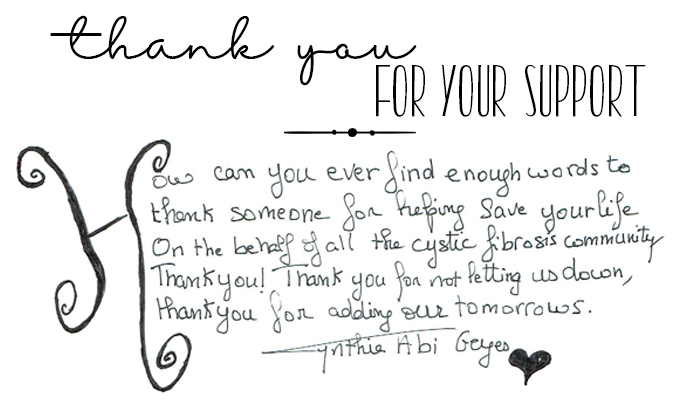 thank you
FOR YOUR SUPPORT
How can you ever find enough words to
thank someone for helping save your life
On the behalf of all the cystic fibrosis community
Thank you! Thank you for not letting us down,
thank you for adding our tomorrows.
Cynthia Abi Geyes